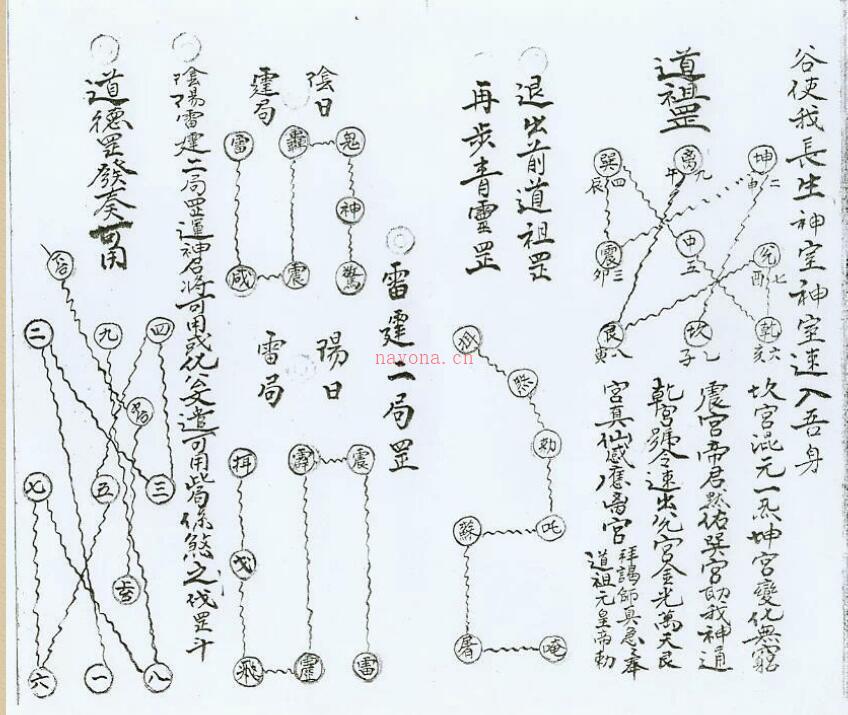 谷使我長生神室神室速入吾身
道祖罡
坤 二 申
離 九 午
巽 四 辰
兌 七 酉
中 五
震 三 卯
乾 六 亥
坎 子
艮 八 寅
坎宮混元一炁坤宮變化無窮
震宮帝君默佑巽宮助我神通
乾宮號令速出兌宮金光萬天艮
宮真仙感應离宮
拜謁師真急急奉
道祖元皇帝勅
退出前道祖罡
再步青靈罡
煞
劾
吒
蘇
屠
唵
雷霆二局罡
陰日
霆局
鬼
轟
雷
神
驚
震
咸
陽日
雷局
震
霹
戈
雷
陰陽雷霆二局罡運神召將可用或化公文遣可用此局係煞之伐罡斗
道德罡發奏可用
四
九
二
三
五
七
八
一
六
nayona.cn